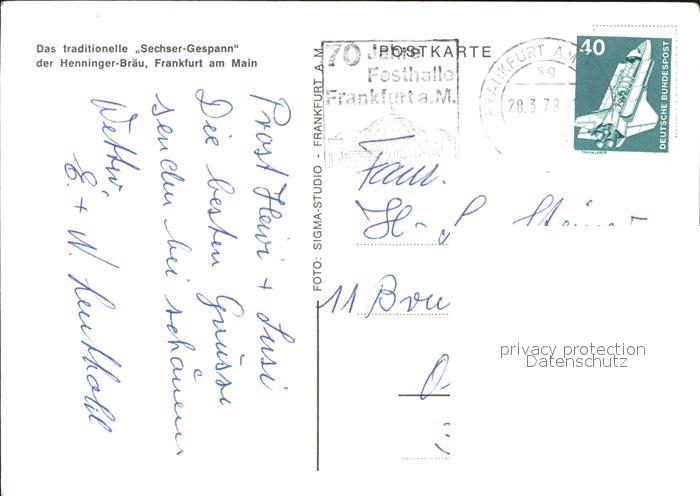 Das traditionelle „Sechser-Gespann"
der Henninger-Bräu, Frankfurt am Main
Prost Heiri + Susi
Die besten Grüsse
senden bei schönem
Wetter
E. + W.
FOTO: SIGMA-STUDIO - FRANKFURT A.M.
POSTKARTE
70 Jahre
Festhalle
Frankfurt a.M.
FRANKFURT AM
sg
28.3.78
40
DEUTSCHE BUNDESPOST
Fam.
H-
11 Brou
privacy protection
Datenschutz